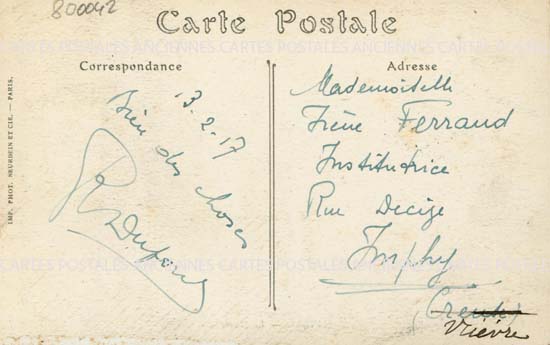 800042
Carte Postale
CARTES POSTALES ANCIENNES CARTES POSTALES ANCIENNES CARTES POSTALES
Correspondance
13-2-17
Bien des choses
R Dufour
Adresse
Mademoiselle
Irène Ferraud
Institutrice
Rue Decize
Imphy
(Creuse)
Nièvre
IMP. PHOT. NEURDEIN ET CIE. — PARIS.